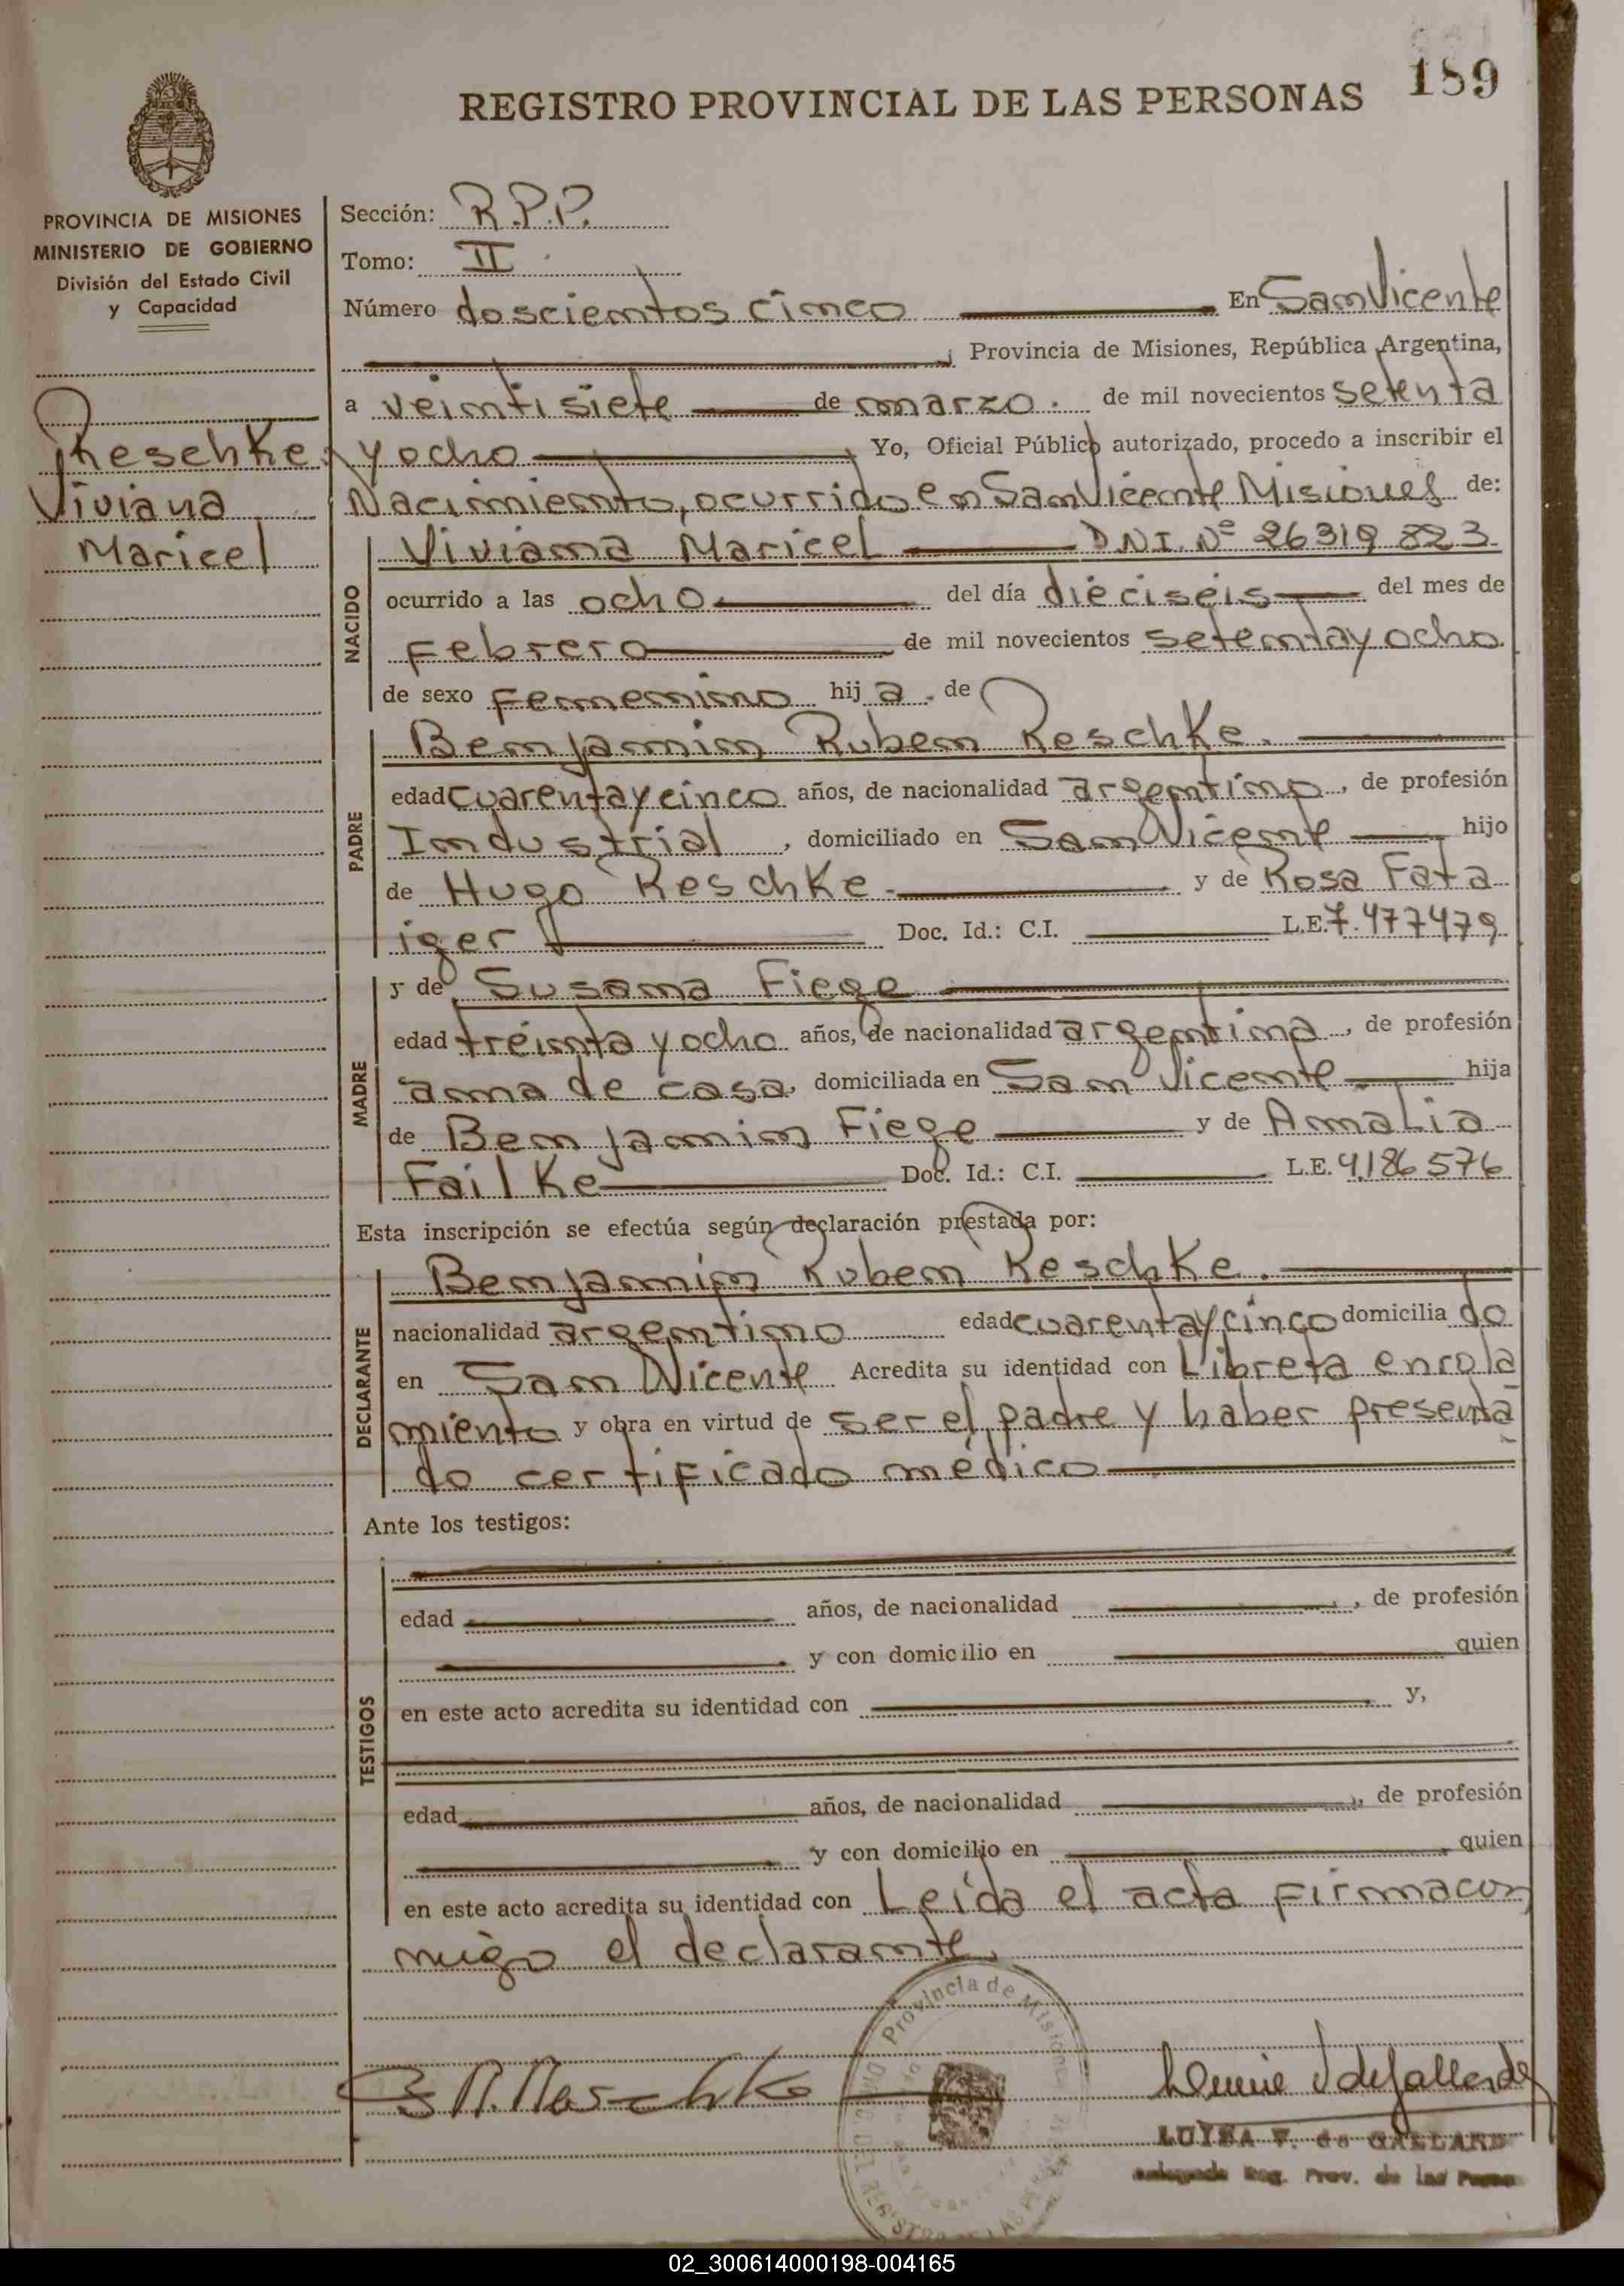 189
REGISTRO PROVINCIAL DE LAS PERSONAS
PROVINCIA DE MISIONES
MINISTERIO DE GOBIERNO
División del Estado Civil
y Capacidad
Reschke
Viviana
Maricel
Sección: R.P.P.
Tomo: II
Número doscientos cinco En San Vicente
, Provincia de Misiones, República Argentina,
a veintisiete de marzo. de mil novecientos setenta
y ocho Yo, Oficial Público autorizado, procedo a inscribir el
Nacimiento, ocurrido en San Vicente Misiones de:
NACIDO
Viviana Maricel DNI. Nº 26319 823
ocurrido a las ocho del día dieciseis del mes de
Febrero de mil novecientos setenta y ocho
de sexo Femenino hij a. de
PADRE
Benjamin Ruben Reschke.
edad cuarenta y cinco años, de nacionalidad argentino, de profesión
Industrial, domiciliado en San Vicente hijo
de Hugo Reschke. y de Rosa Fata
iger Doc. Id.: C.I. L.E. 7.477479
MADRE
y de Susana Fiege
edad treinta y ocho años, de nacionalidad argentina, de profesión
ama de casa, domiciliada en San Vicente hija
de Benjamin Fiege y de Amalia
Failke Doc. Id.: C.I. L.E. 4.186 576
Esta inscripción se efectúa según declaración prestada por:
DECLARANTE
Benjamin Ruben Reschke.
nacionalidad argentino edad cuarenta y cinco domicilia do
en San Vicente Acredita su identidad con Libreta enrola
miento y obra en virtud de ser el padre y haber presenta
do certificado médico
Ante los testigos:
TESTIGOS
edad años, de nacionalidad , de profesión
y con domicilio en quien
en este acto acredita su identidad con y,
edad años, de nacionalidad , de profesión
y con domicilio en quien
en este acto acredita su identidad con Leída el acta firma con
migo el declarante.
Provincia de Misiones
B R. Reschke
LUISA V. de GALLARD
Reg. Prov. de las
02_300614000198-004165